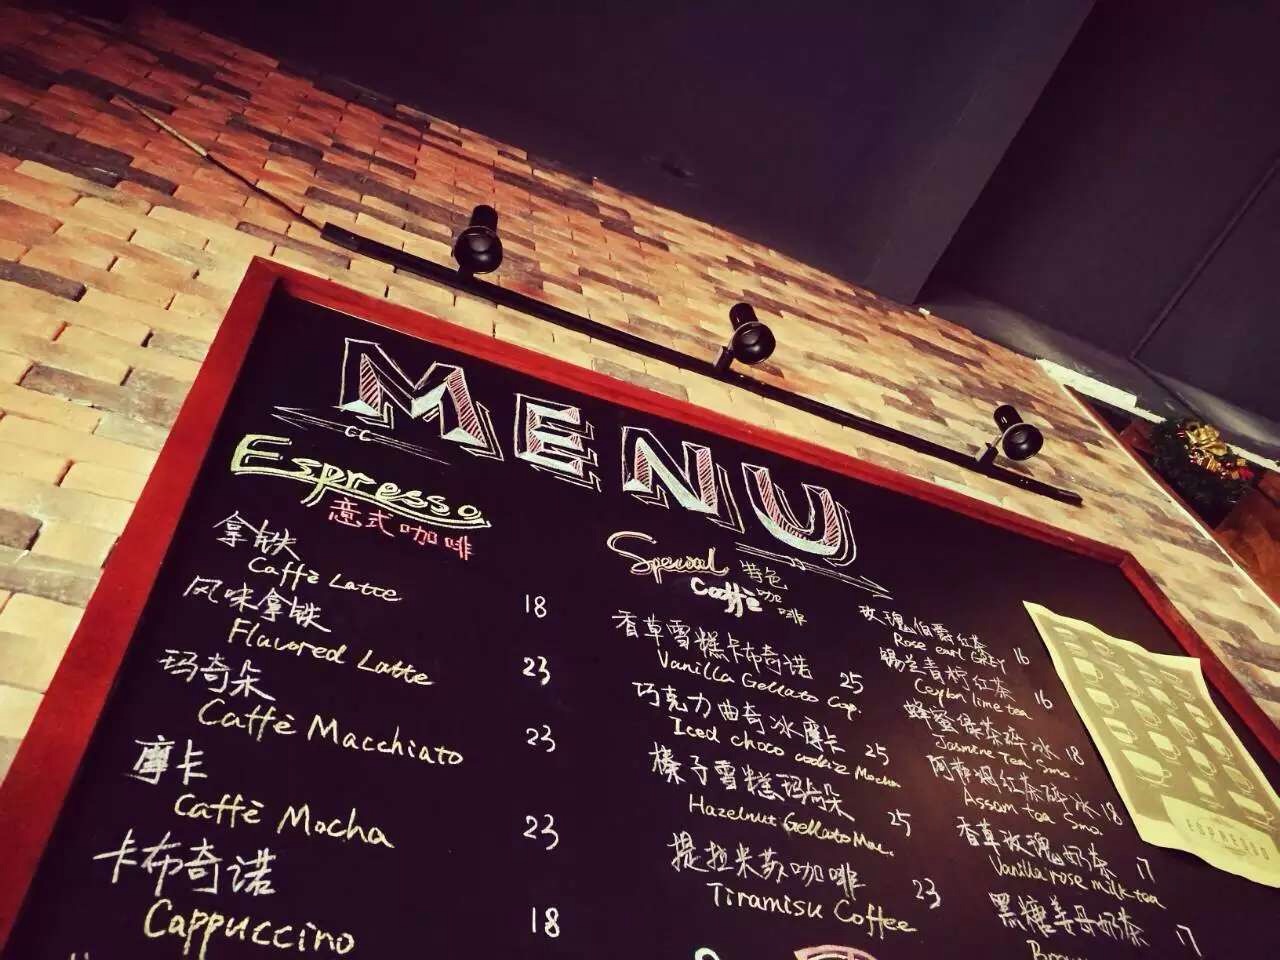 MENU
Espresso
意式咖啡
拿铁
Caffè Latte 18
风味拿铁
Flavored Latte 23
玛奇朵
Caffè Macchiato 23
摩卡
Caffè Mocha 23
卡布奇诺
Cappuccino 18
Special 特色
Caffè 咖啡
香草雪糕卡布奇诺
Vanilla Gellato Cap. 25
巧克力曲奇冰摩卡
Iced choco cookie Mocha 25
榛子雪糕玛奇朵
Hazelnut Gellato Mac. 25
提拉米苏咖啡
Tiramisu Coffee 23
玫瑰伯爵红茶
Rose earl GREY 16
锡兰青柠红茶
Ceylon lime tea 16
蜂蜜绿茶碎冰
Jasmine Tea Smo. 18
阿萨姆红茶碎冰
Assam tea Smo. 18
香草玫瑰奶茶
Vanilla rose milk tea 17
黑糖姜母奶茶 17
ESPRESSO